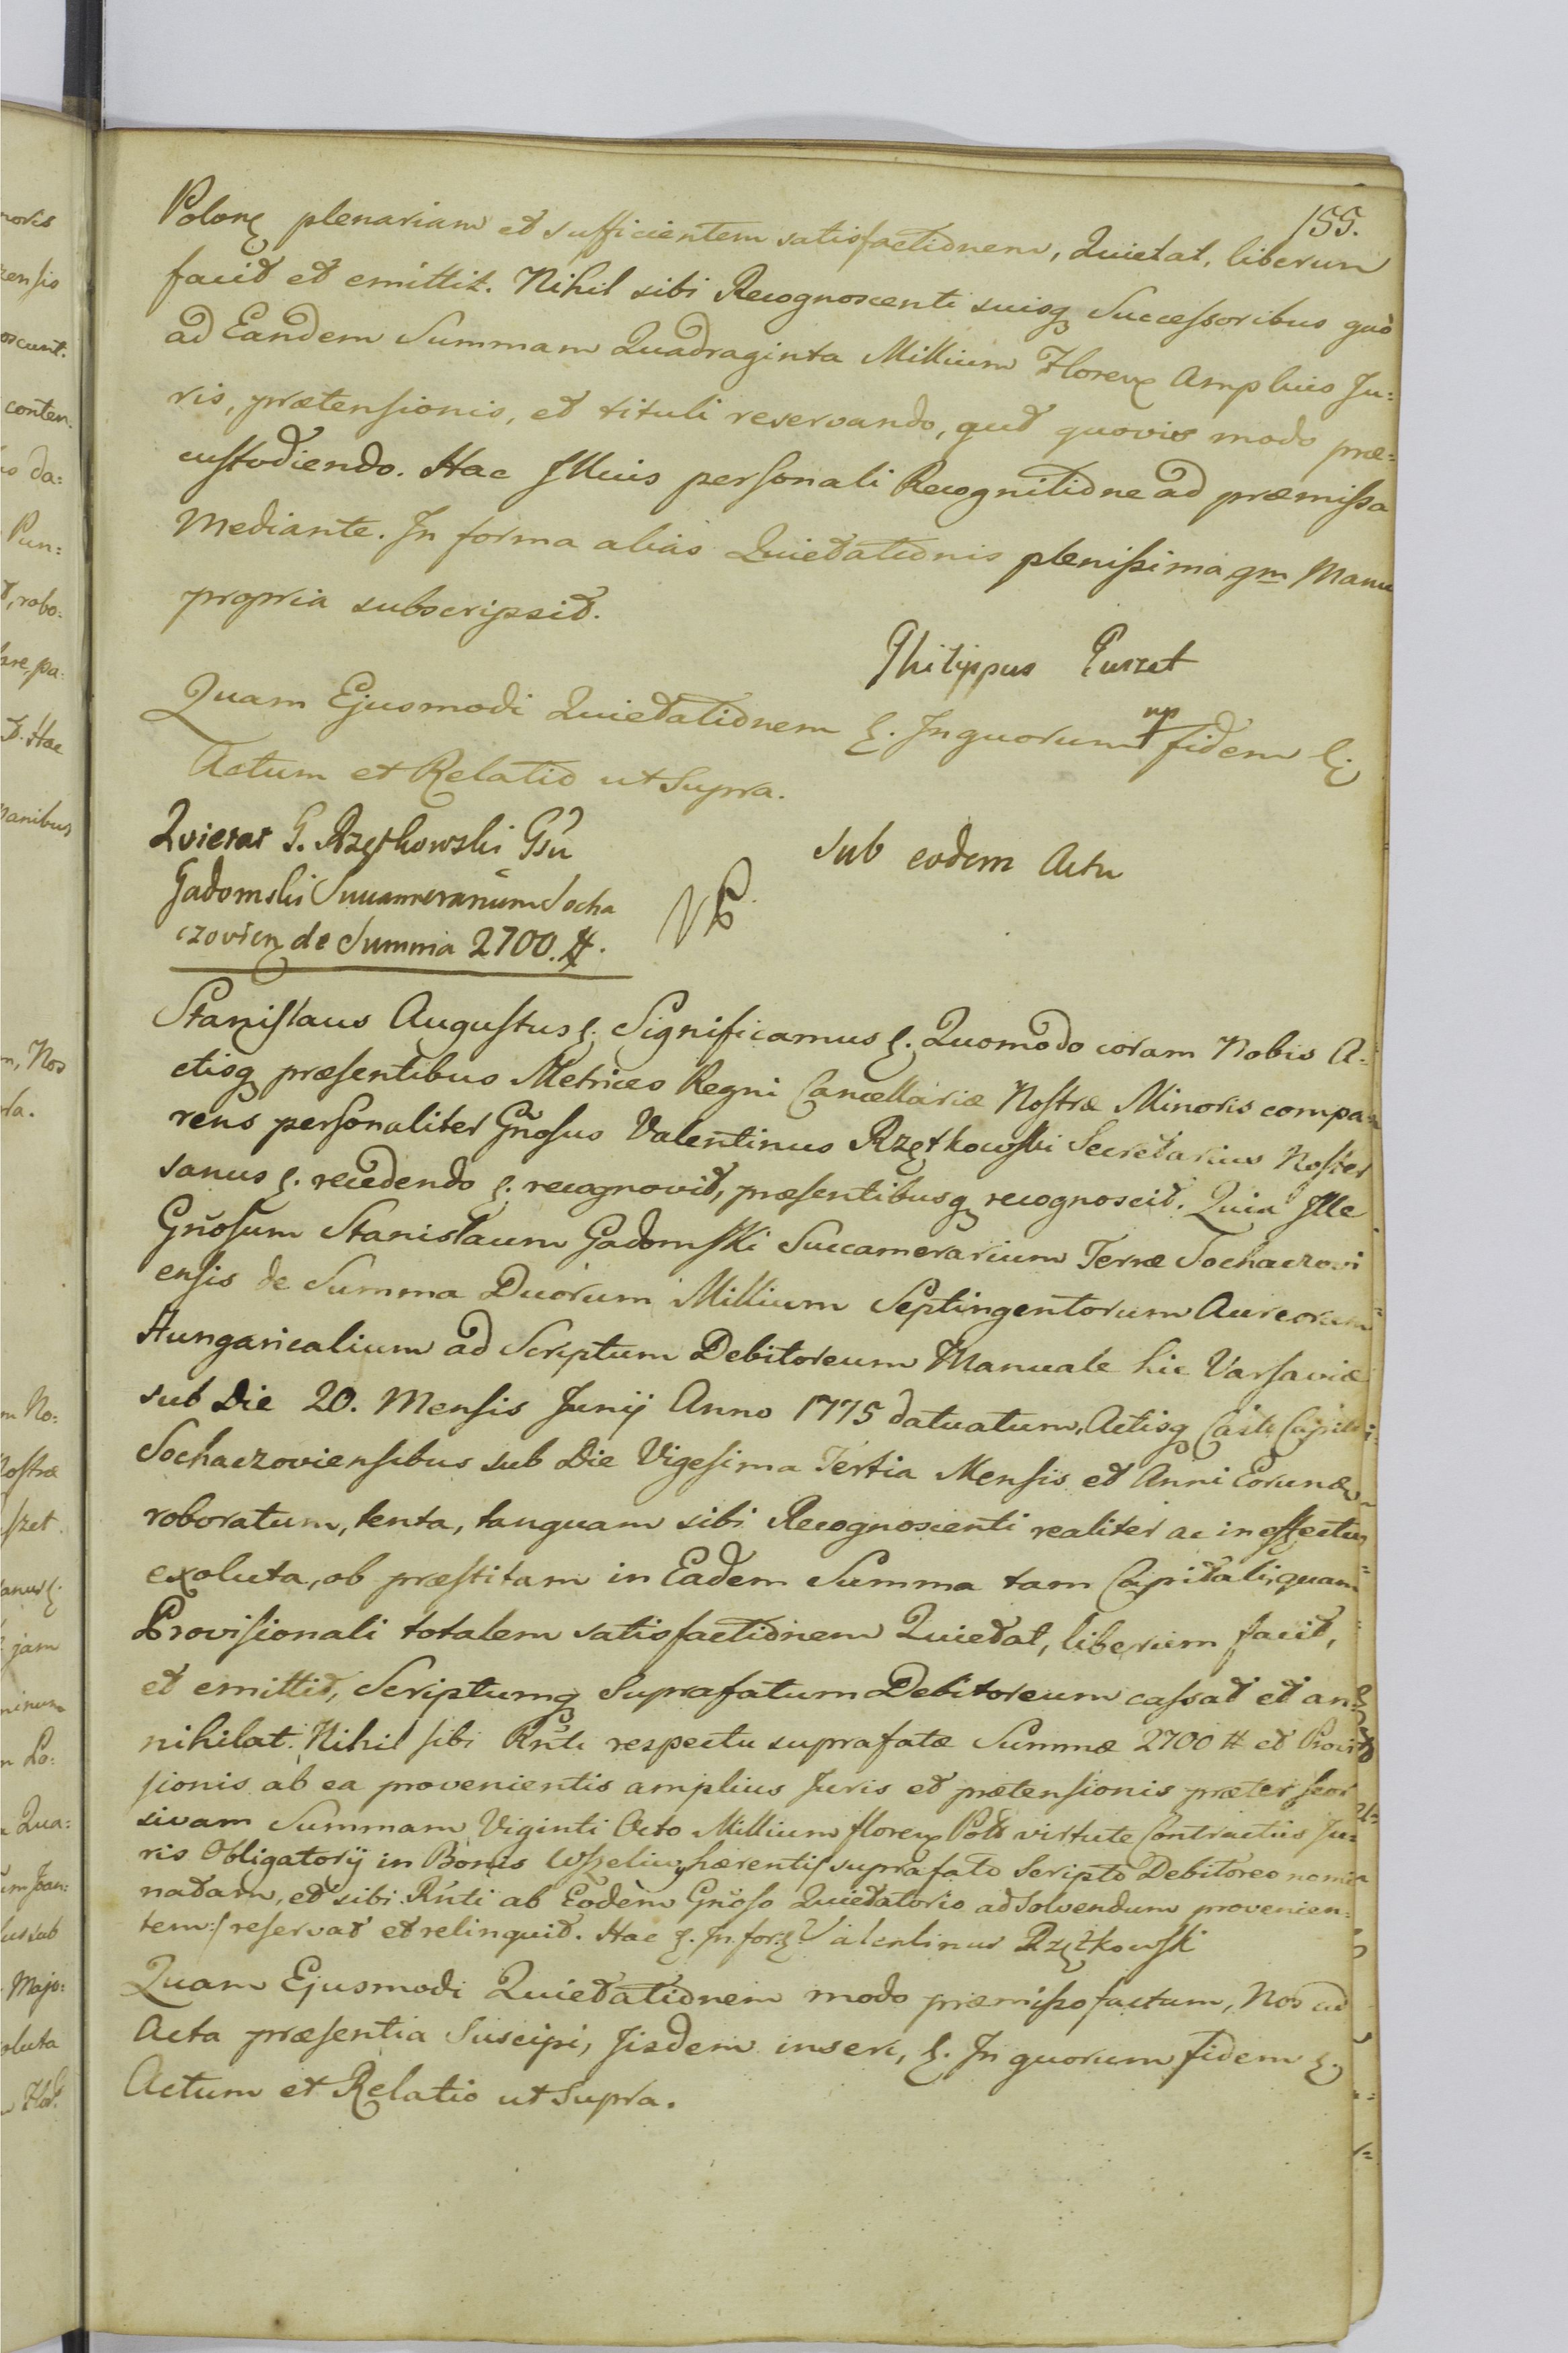 155.
Polonę plenariam et sufficientem satisfactionem, Quietat, liberum
facit et emittit. Nihil sibi Recognoscenti suisq Successoribus quo
ad Eandem Summam Quadraginta Millium Floreñ Amplius Ju:
ris, prætensionis, et tituli reservando, qut quovis modo præ:
custodiendo. Hac Illius personali Recognitione ad præmissa
Mediante. In forma alias Quietationis plenissima qm Manu
propria subscripsit.
Philippus Puszet
mp
Quam Ejusmodi Quietationem ξ. In quorum fidem ξ.
Actum et Relatio ut Supra.
Quietat G. Rzętkowski Gsu
Gadomski Succamerarium Socha
czovien de Summa 2700. #.
sub eodem Actu
Stanislaus Augustus ξ. Significamus ξ. Quomodo coram Nobis A:
ctisq præsentibus Metrices Regni Cancellariæ Nostræ Minoris compa:
rens personaliter Gñosus Valentinus Rzętkowski Secretarius Noster
sanus ξ. recedendo ξ. recognovit, præsentibusq recognoscit. Quia Ille
Gñosum Stanislaum Gadomski Succamerarium Terræ Sochaczovi
ensis de Summa Duorum Millium Septingentorum Aureorum
Hungaricalium ad Scriptum Debitoreum Manuale hic Varsaviæ
sub Die 20. Mensis Junij Anno 1775 datuatum, Actisq Castr Capitn:
Sochaczoviensibus sub Die Vigesima Tertia Mensis et Anni Eorundem
roboratum, tenta, tanquam sibi Recognoscenti realiter ac in effectu
exoluta, ob præstitam in Eadem Summa tam Capitali, quam
Provisionali totalem satisfactionem Quietat, liberum facit,
et emittit, Scriptumq Suprafatum Debitoreum cassat et an:
nihilat. Nihil sibi Rñti respectu suprafatæ Summæ 2700 # et Provi
sionis ab ea provenientis amplius Juris et prætensionis præter seor
sivam Summam Viginti Octo Millium floreñ Pol virtute Contractus Ju:
ris Obligatorij in Bonis hærenti/suprafato Scripto Debitoreo nomi
natam, et sibi Rñti ab Eodem Gñoso Quietatorio ad solvendum provenien:
tem:/ reservat et relinquit. Hac ξ. In for: ξ Valentinus Rzętkowski
Quam Ejusmodi Quietationem modo præmisso factam, Nos ad
Acta præsentia Suscipi, Jisdem inseri, ξ. In quorum fidem ξ.
Actum et Relatio ut Supra.